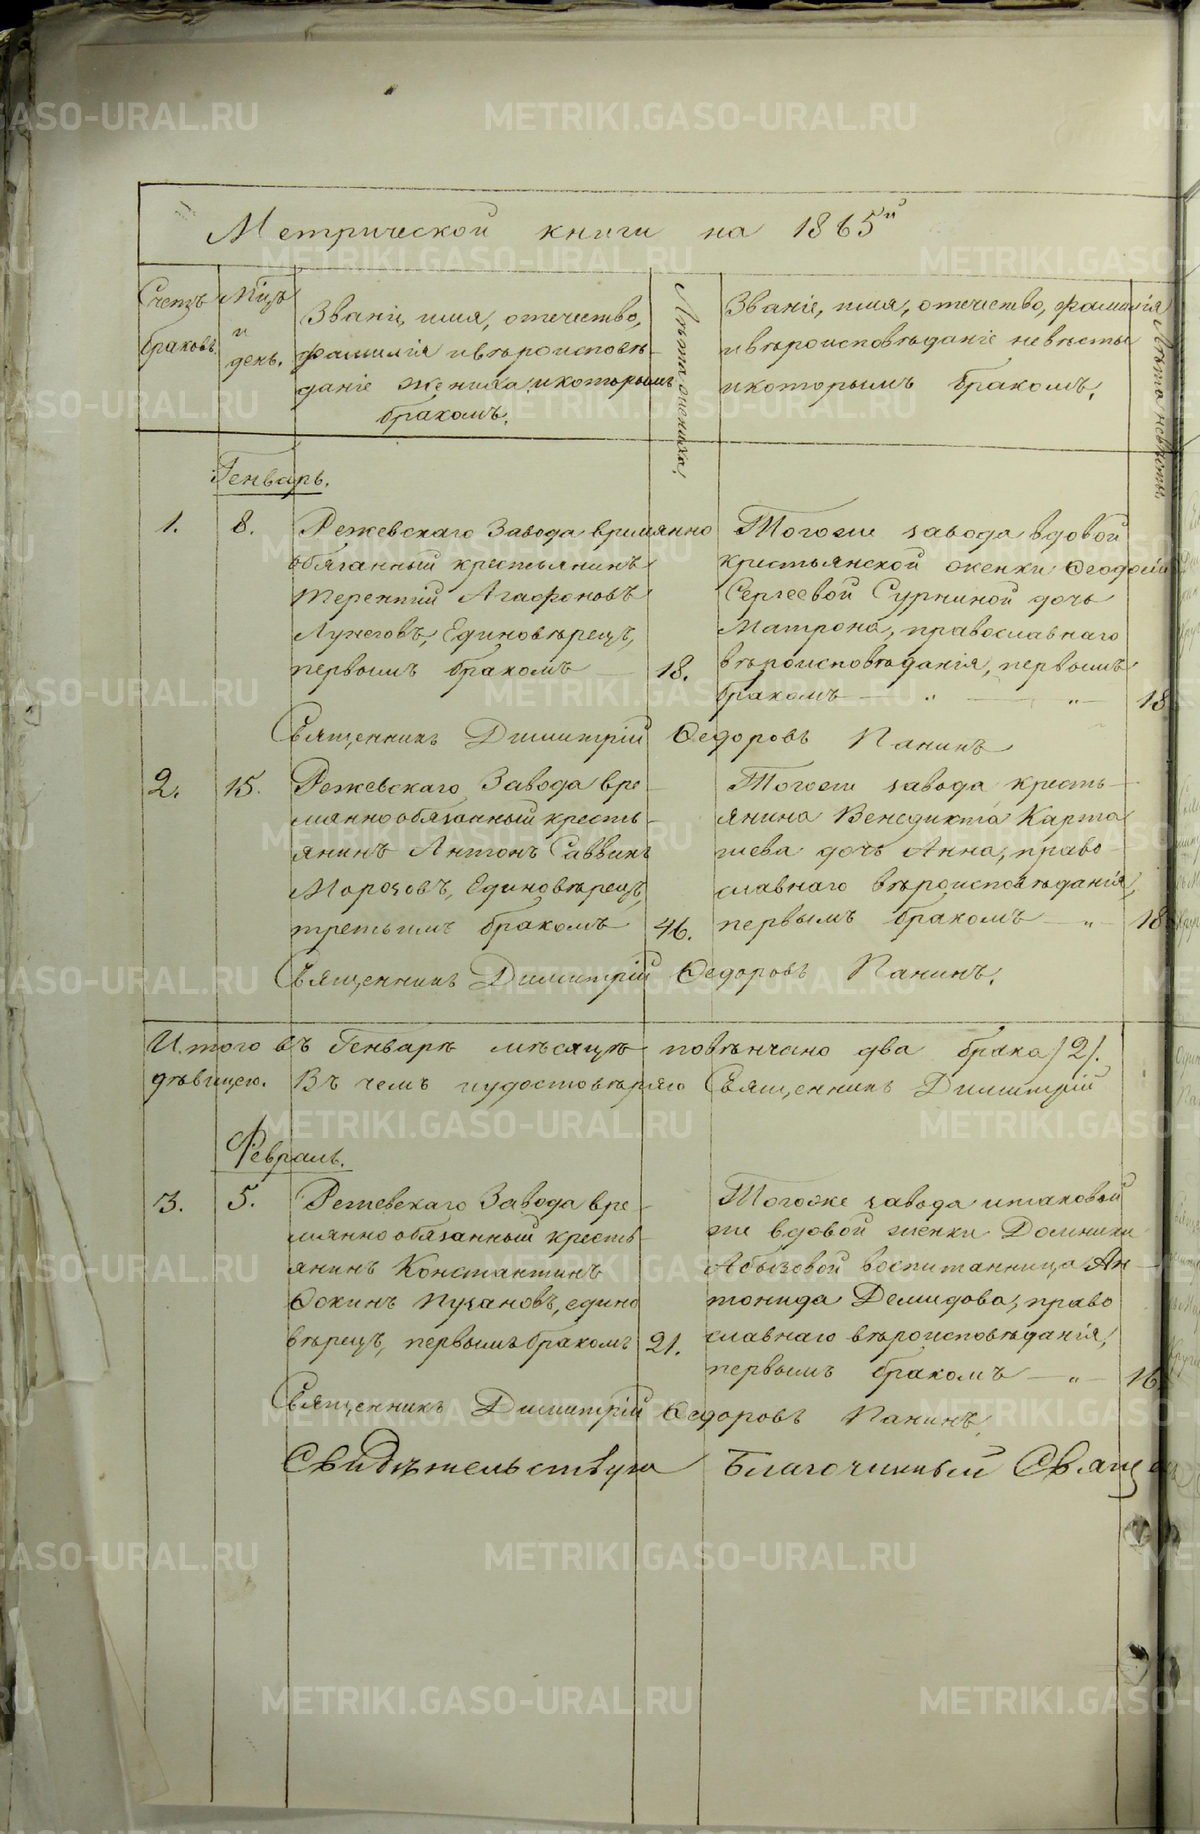 Метрической книги на 1865й
Счетъ браковъ.
Мцъ и день.
Званіе, имя, отечество,
фамилія и вѣроисповѣ-
даніе жениха, и которымъ
бракомъ.
Лѣта жениха.
Званіе, имя, отечество, фамилія
и вѣроисповѣданіе невѣсты
и которымъ бракомъ.
Лѣта невѣсты.
Генварь.
1. 8.
Режевскаго Завода времянно
обязанный крестьянинъ
Терентій Агафоновъ
Лунеговъ, Единовѣрецъ,
первымъ бракомъ — 18.
Тогоже завода вдовой
крестьянской женки Ѳеодосіи
Сергеевой Сурниной дочь
Матрона, православнаго
вѣроисповѣданія, первымъ
бракомъ — „ — „ — 18
Священникъ Димитрій Ѳедоровъ Панинъ
2. 15.
Режевскаго Завода вре-
мянно обязанный кресть-
янинъ Антонъ Саввинъ
Морозовъ, Единовѣрецъ,
третьимъ бракомъ 46.
Тогоже завода кресть-
янина Венедикта Карта
шева дочь Анна, право-
славнаго вѣроисповѣданія,
первымъ бракомъ — „ — 18
Священникъ Димитрій Ѳедоровъ Панинъ.
Итого въ Генварѣ мѣсяцѣ повѣнчано два брака /2/.
дѣвицею. Въ чемъ и удостовѣряю Священникъ Димитрій
Февраль.
3. 5.
Режевскаго Завода вре-
мянно обязанный кресть-
янинъ Константинъ
Ѳокинъ Пузановъ, едино
вѣрецъ, первымъ бракомъ 21.
Тогоже завода и таковой
же вдовой женки Домники
Абызовой воспитанница Ан-
тонида Демидова, право
славнаго вѣроисповѣданія,
первымъ бракомъ — „ — 16
Священникъ Димитрій Ѳедоровъ Панинъ.
Свидѣтельствую Благочинный Священ